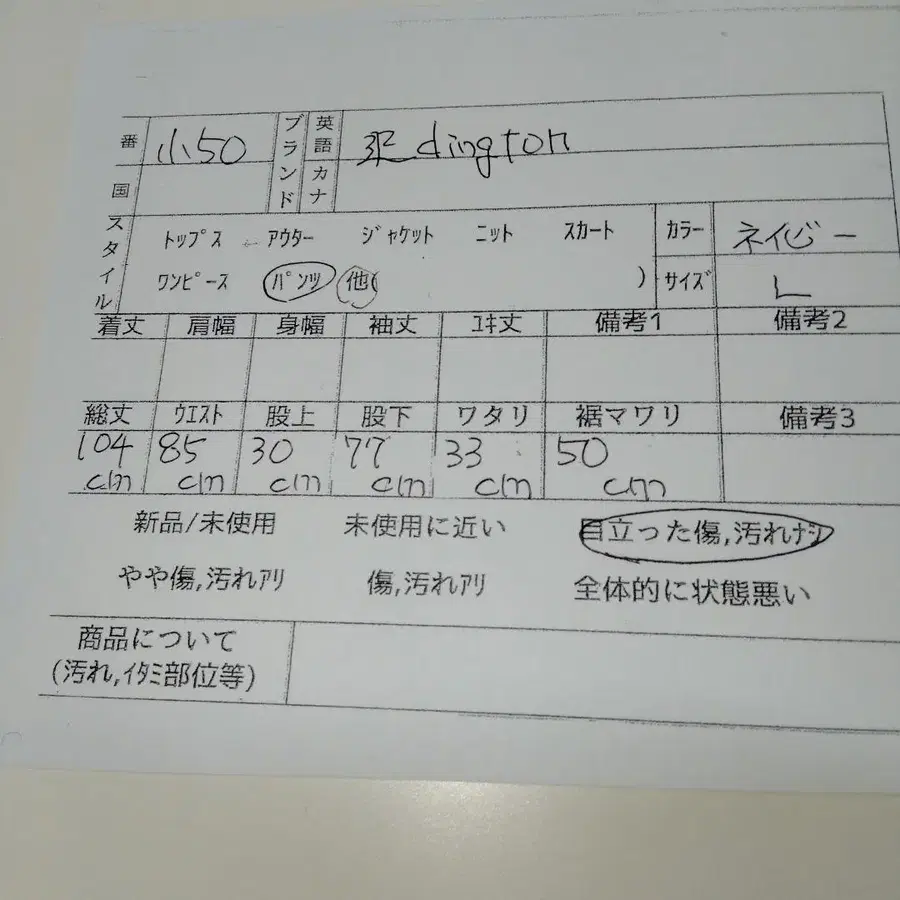 番 小50 ブランド 英語 dington
国 カナ
スタイル トップス アウター ジャケット ニット スカート カラー ネイビー
ワンピース パンツ 他( ) サイズ L
着丈 肩幅 身幅 袖丈 ユキ丈 備考1 備考2
総丈 ウエスト 股上 股下 ワタリ 裾マワリ 備考3
104 85 30 77 33 50
cm cm cm cm cm cm
新品/未使用 未使用に近い 目立った傷,汚れナシ
やや傷,汚れアリ 傷,汚れアリ 全体的に状態悪い
商品について
(汚れ,イタミ部位等)